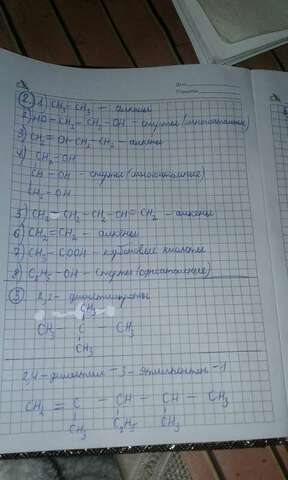 ② 1) CH₃ – CH₃ – алканы
2) HO – CH₂ – CH₂ – OH – спирты (многоатомные)
3) CH₂ = CH – CH₂ – CH₃ – алкены
4) CH₂ – OH
CH – OH – спирты (многоатомные)
CH₂ – OH
5) CH₂ = CH₂ – CH₂ – CH = CH₂ – алкены
6) CH₂ = CH₂ – алкены
7) CH₃ – COOH – карбоновые кислоты
8) C₂H₅ – OH – спирты (одноатомные)
③ 2,2 – диметилпропан
CH₃
CH₃ – C – CH₃
CH₃
2,4 – диметил – 3 – этилпентен – 1
CH₂ = C – CH – CH – CH₃
CH₃ C₂H₅ CH₃